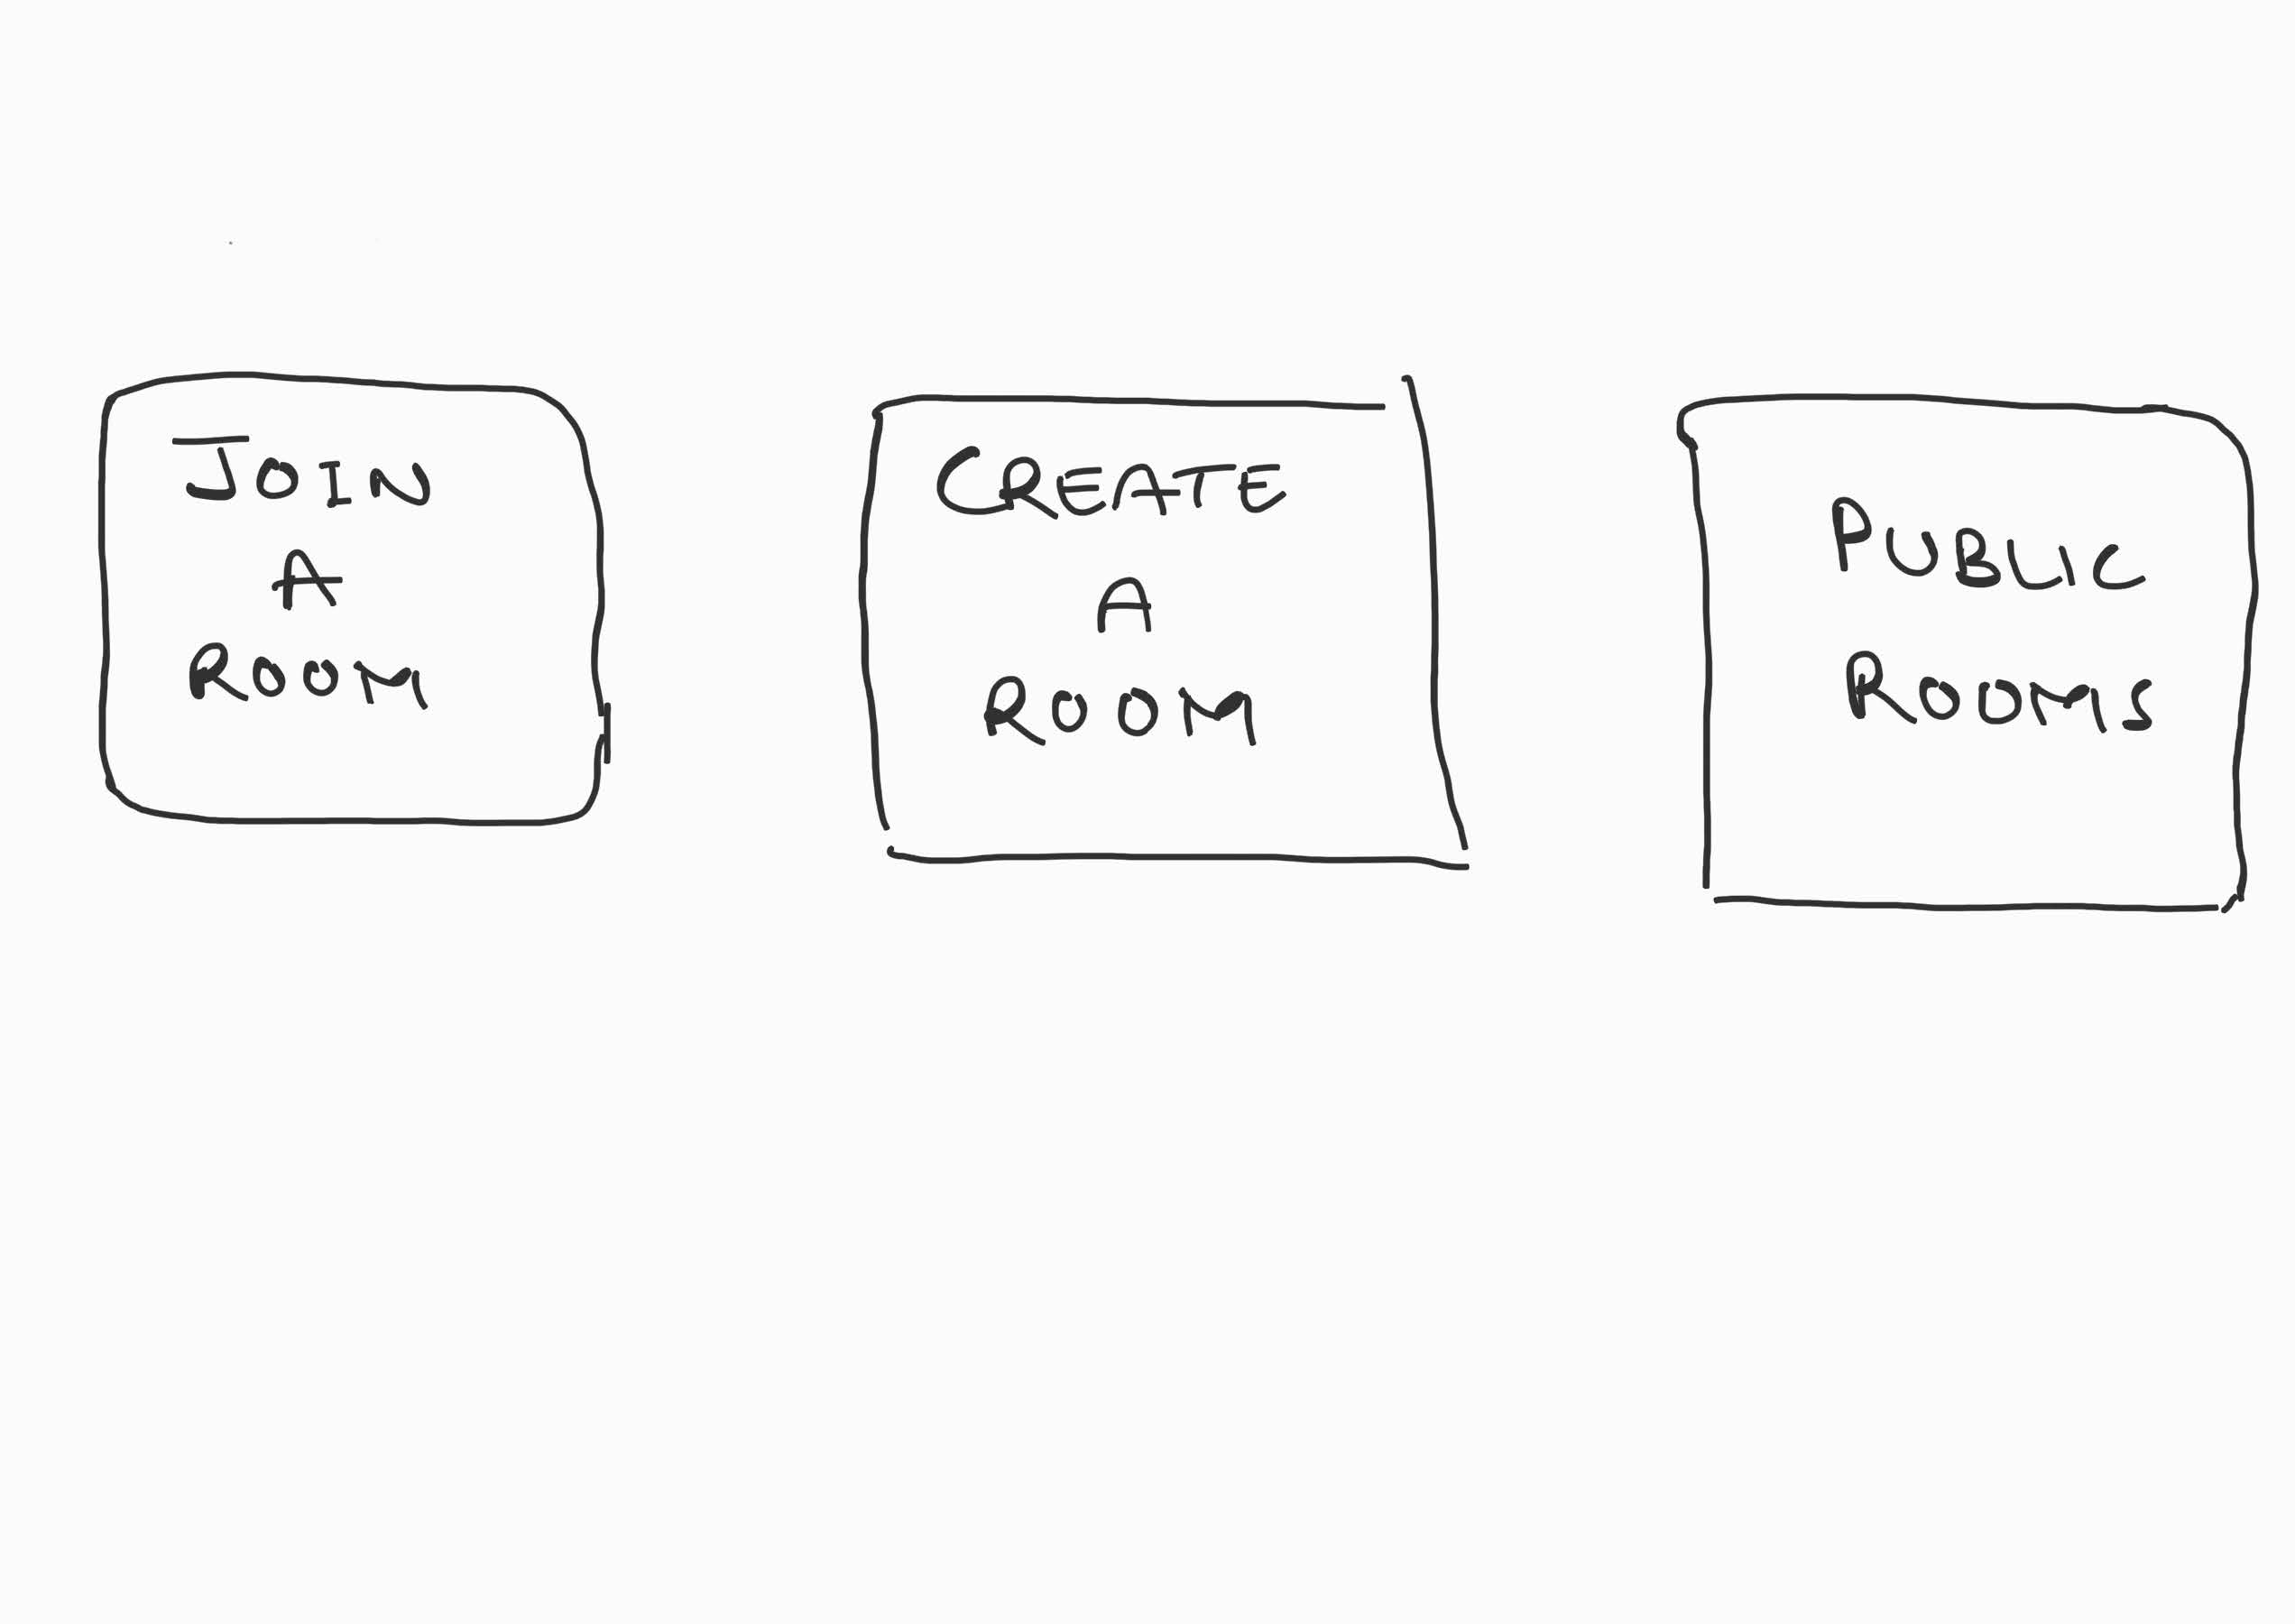 JOIN
A
ROOM
CREATE
A
ROOM
PUBLIC
ROOMS